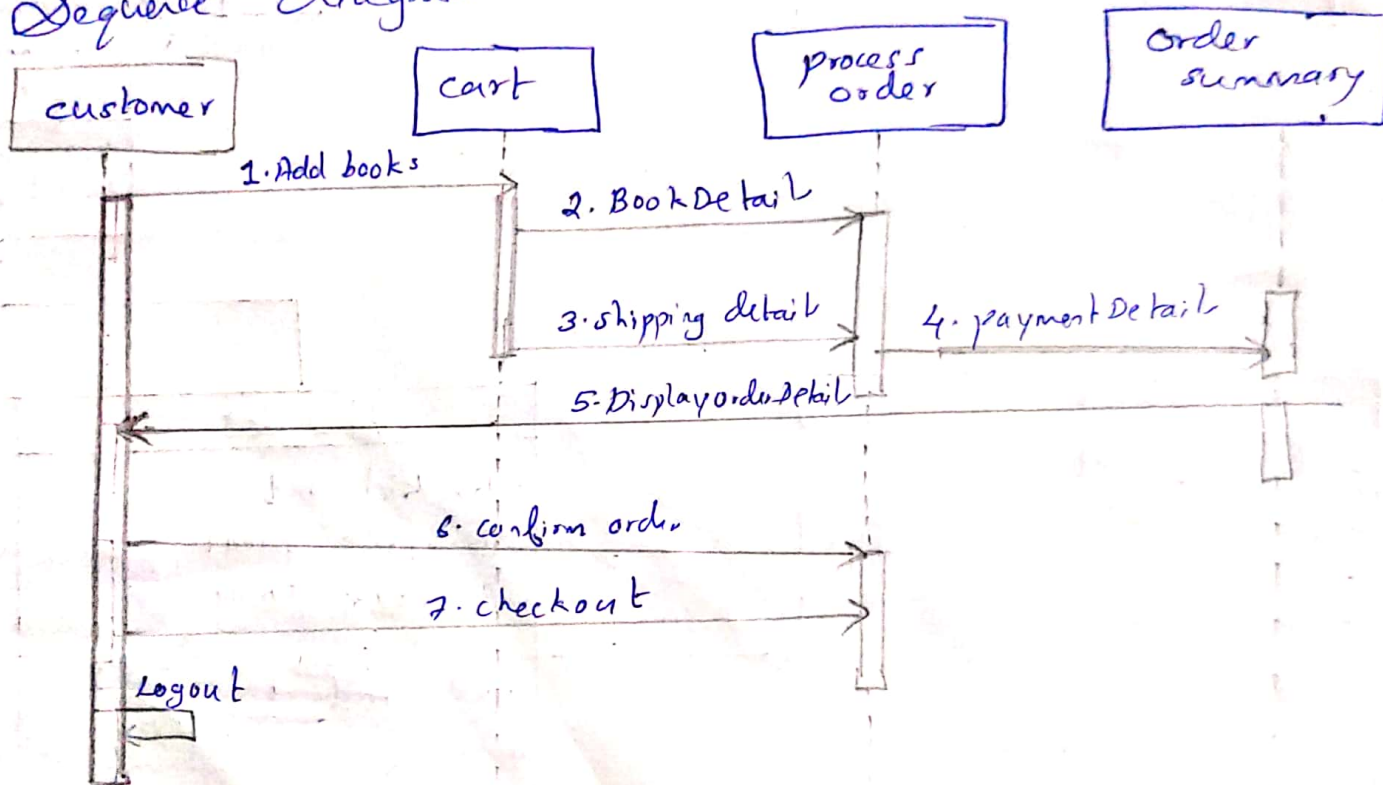 Sequence
customer
cart
process
order
order
summary
1. Add books
2. BookDetail
3. shipping detail
4. paymentDetail
5. DisplayorderDetail
6. confirm order
7. checkout
Logout